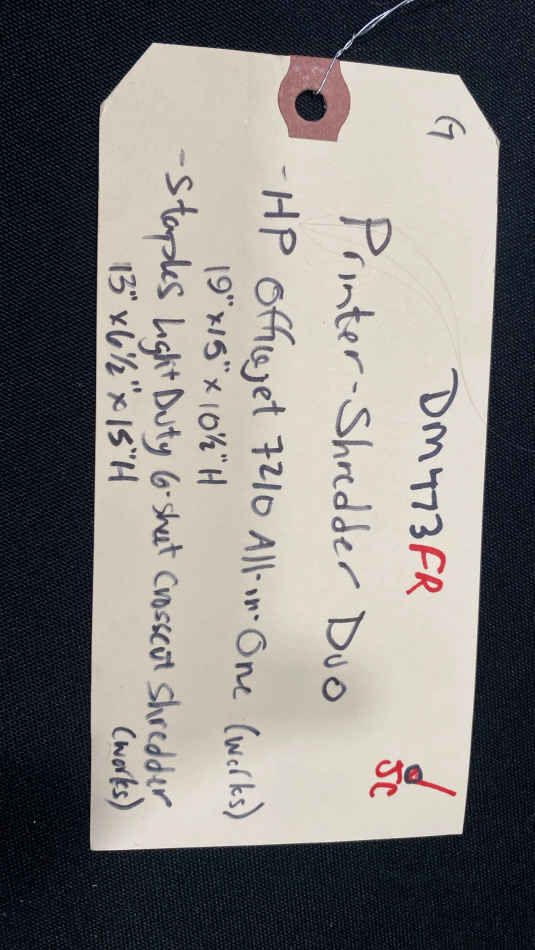 G
DM473FR
JC
Printer-Shredder Duo
- HP Officejet 7210 All-in-One (works)
19" x 15" x 10½" H
- Staples Light Duty 6-sheet Crosscut Shredder
(works)
13" x 6½" x 15" H